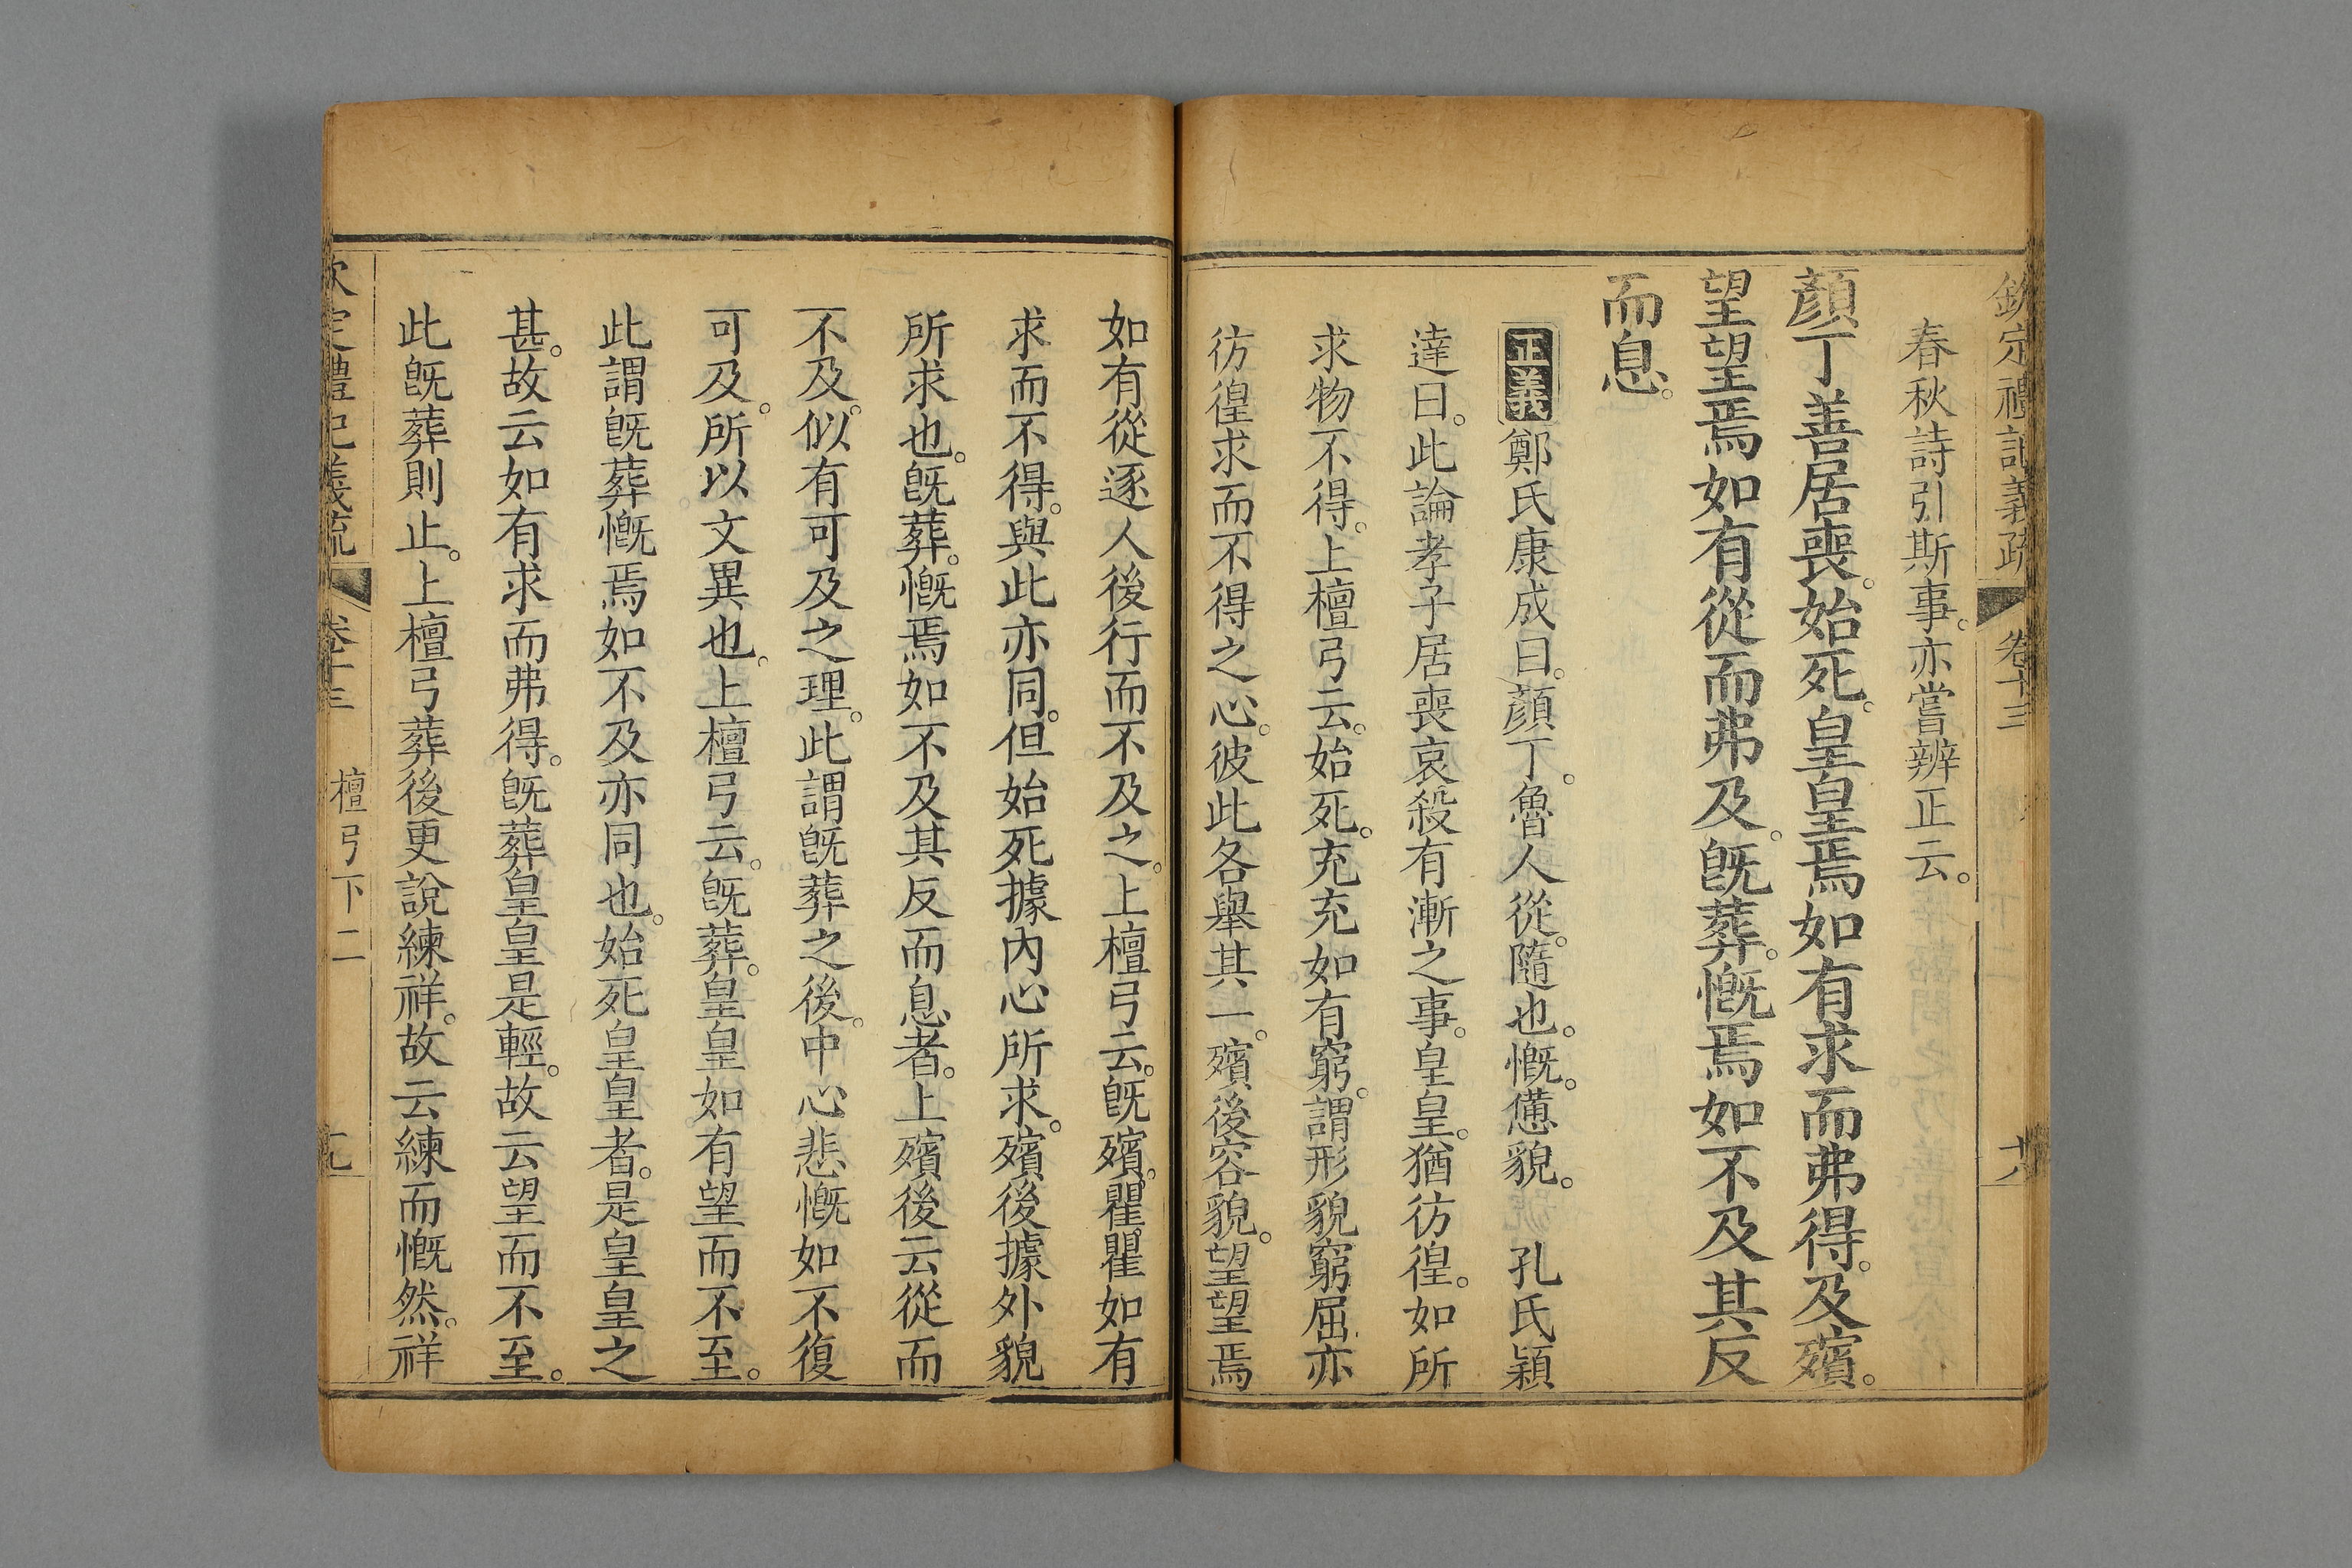 欽定禮記義疏 卷十三 十八
春秋詩引斯事。亦嘗辨正云。
顏丁善居喪。始死。皇皇焉如有求而弗得。及殯。
望望焉如有從而弗及。旣葬。慨焉如不及其反
而息。
正義鄭氏康成曰。顏丁。魯人從。隨也。慨。憊貌。 孔氏穎
達曰。此論孝子居喪哀殺有漸之事。皇皇。猶彷徨。如所
求物不得。上檀弓云。始死。充充如有窮。謂形貌窮屈亦
彷徨求而不得之心。彼此各舉其一。殯後容貌。望望焉
如有從逐人後行而不及之。上檀弓云。旣殯。瞿瞿如有
求而不得。與此亦同。但始死據內心所求。殯後據外貌
所求也。旣葬。慨焉如不及其反而息者。上殯後云從而
不及。似有可及之理。此謂旣葬之後。中心悲慨如不復
可及。所以文異也。上檀弓云。旣葬。皇皇如有望而不至。
此謂旣葬慨焉如不及亦同也。始死皇皇者。是皇皇之
甚。故云如有求而弗得。旣葬皇皇是輕。故云望而不至。
此旣葬則止。上檀弓葬後更說練祥。故云練而慨然。祥
欽定禮記義疏 卷十三 檀弓下二 十九